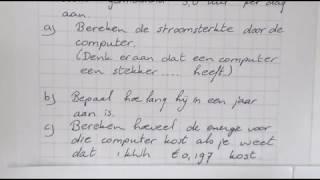 3,0 uur per dag
aan.
a) Bereken de stroomsterkte door de
computer.
(Denk eraan dat een computer
een stekker ..... heeft)
b) Bepaal hoe lang hij in een jaar
aan is.
c) Bereken hoeveel de energie voor
die computer kost als je weet
dat 1 kWh €0,197 kost